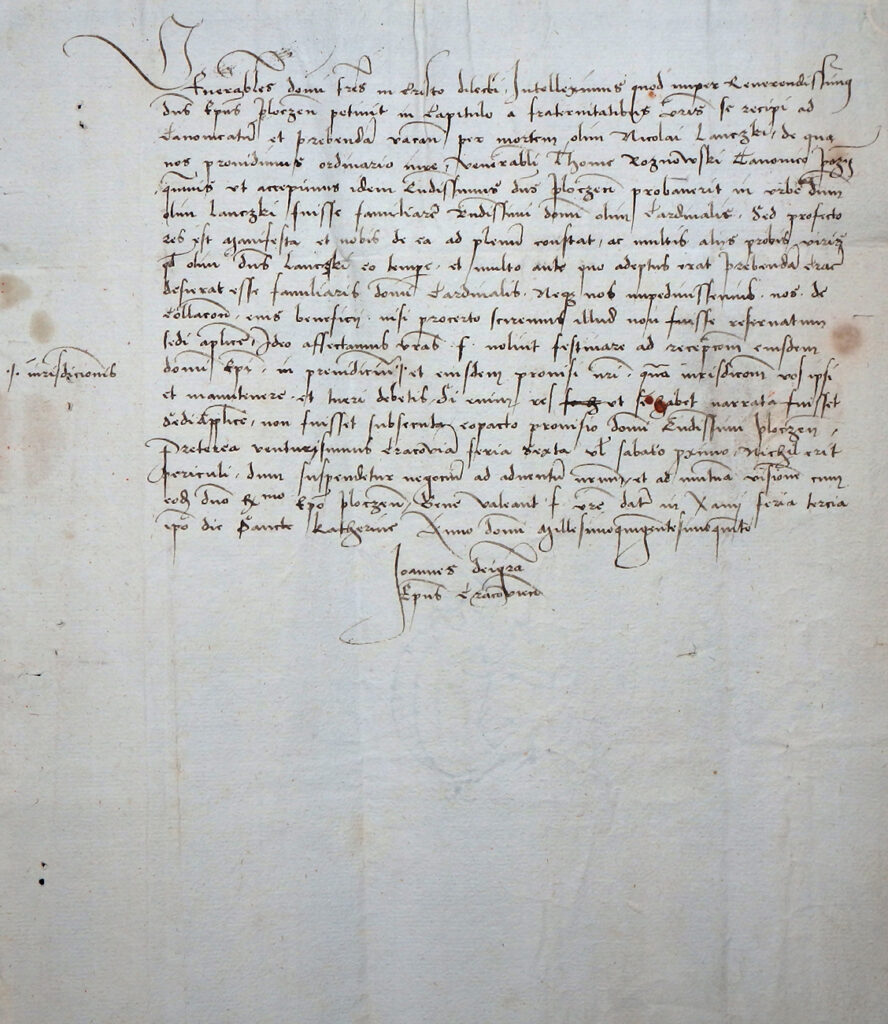 Venerabiles domini fres in Cristo dilecti, Intelleximus quod nuper Reverendissimus
dns Epus Ploczen petivit in Capitulo a fraternitatibus vris se recipi ad
Canonicatu et prebenda vacan per mortem olim Nicolai Lanczki, de qua
nos providimus ordinario iure, venerabili Thome Roznowski Canonico
quivis ut accepimus idem Rndissimus dns Ploczen probaverit in urbe dnm
olim Lanczki fuisse familiare Rndissimi domini olim Cardinalis. Sed profecto
res est manifesta et nobis de ea ad plenu constat, ac multis alys probis viris
qd olim dns Lanczki eo tempe, et multo ante quo adeptus erat prebenda Crac
desierat esse familiaris domini Cardinalis. Neqz nos impedivissemus nos de
Collacon eius beneficii nisi procerto sciremus illud non fuisse reservatum
sedi aplice, Ideo affectamus vras f. nolint festinare ad recepcom eiusdem
domini Epi, in preiudiciu ·/· et eiusdem provisi nri, qua iurisdiciom vos ipsi
·/· iurisdicionis
et manutenere et tueri debetis, Si enim res ut se habet narrata fuisset
Sedi Aplice, non fuisset subsecuta eo pacto provisio domini Rndissimi Ploczen,
Preterea venturi sumus Cracovia feria sexta vl sabato pximo, Nichil erit
periculi, dum suspendetur negociu ad adventu nrum, et ad mutua visione cum
eodz dno Rmo Epo Ploczen, Bene valeant f. vre dat in feria tercia
ipo die Sancte Katherine Anno domini Millesimoquingentesimoquinto
Joannes dei gra
Epus Cracovien